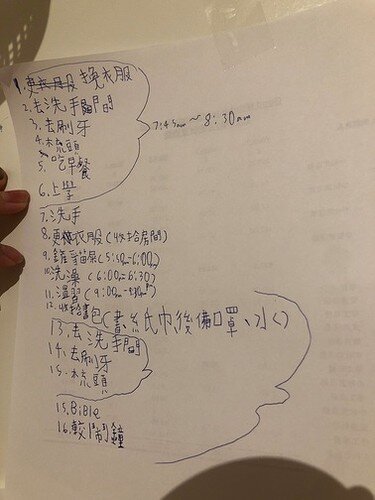 1. 更衣服 換衣服
2. 去洗手間
3. 去刷牙
4. 梳頭
5. 吃早餐
6. 上學
7:45am ~ 8:30am
7. 洗手
8. 更換衣服 (收拾房間)
9. 貓尿 (5:50pm-6:00)
10. 洗澡 (6:00pm-6:30)
11. 溫習 (9:00pm-9:30pm)
12. 收拾書包 (書、紙巾、後備口罩、水)
13. 去洗手間
14. 去刷牙
15. 梳頭
15. Bible
16. 較鬧鐘